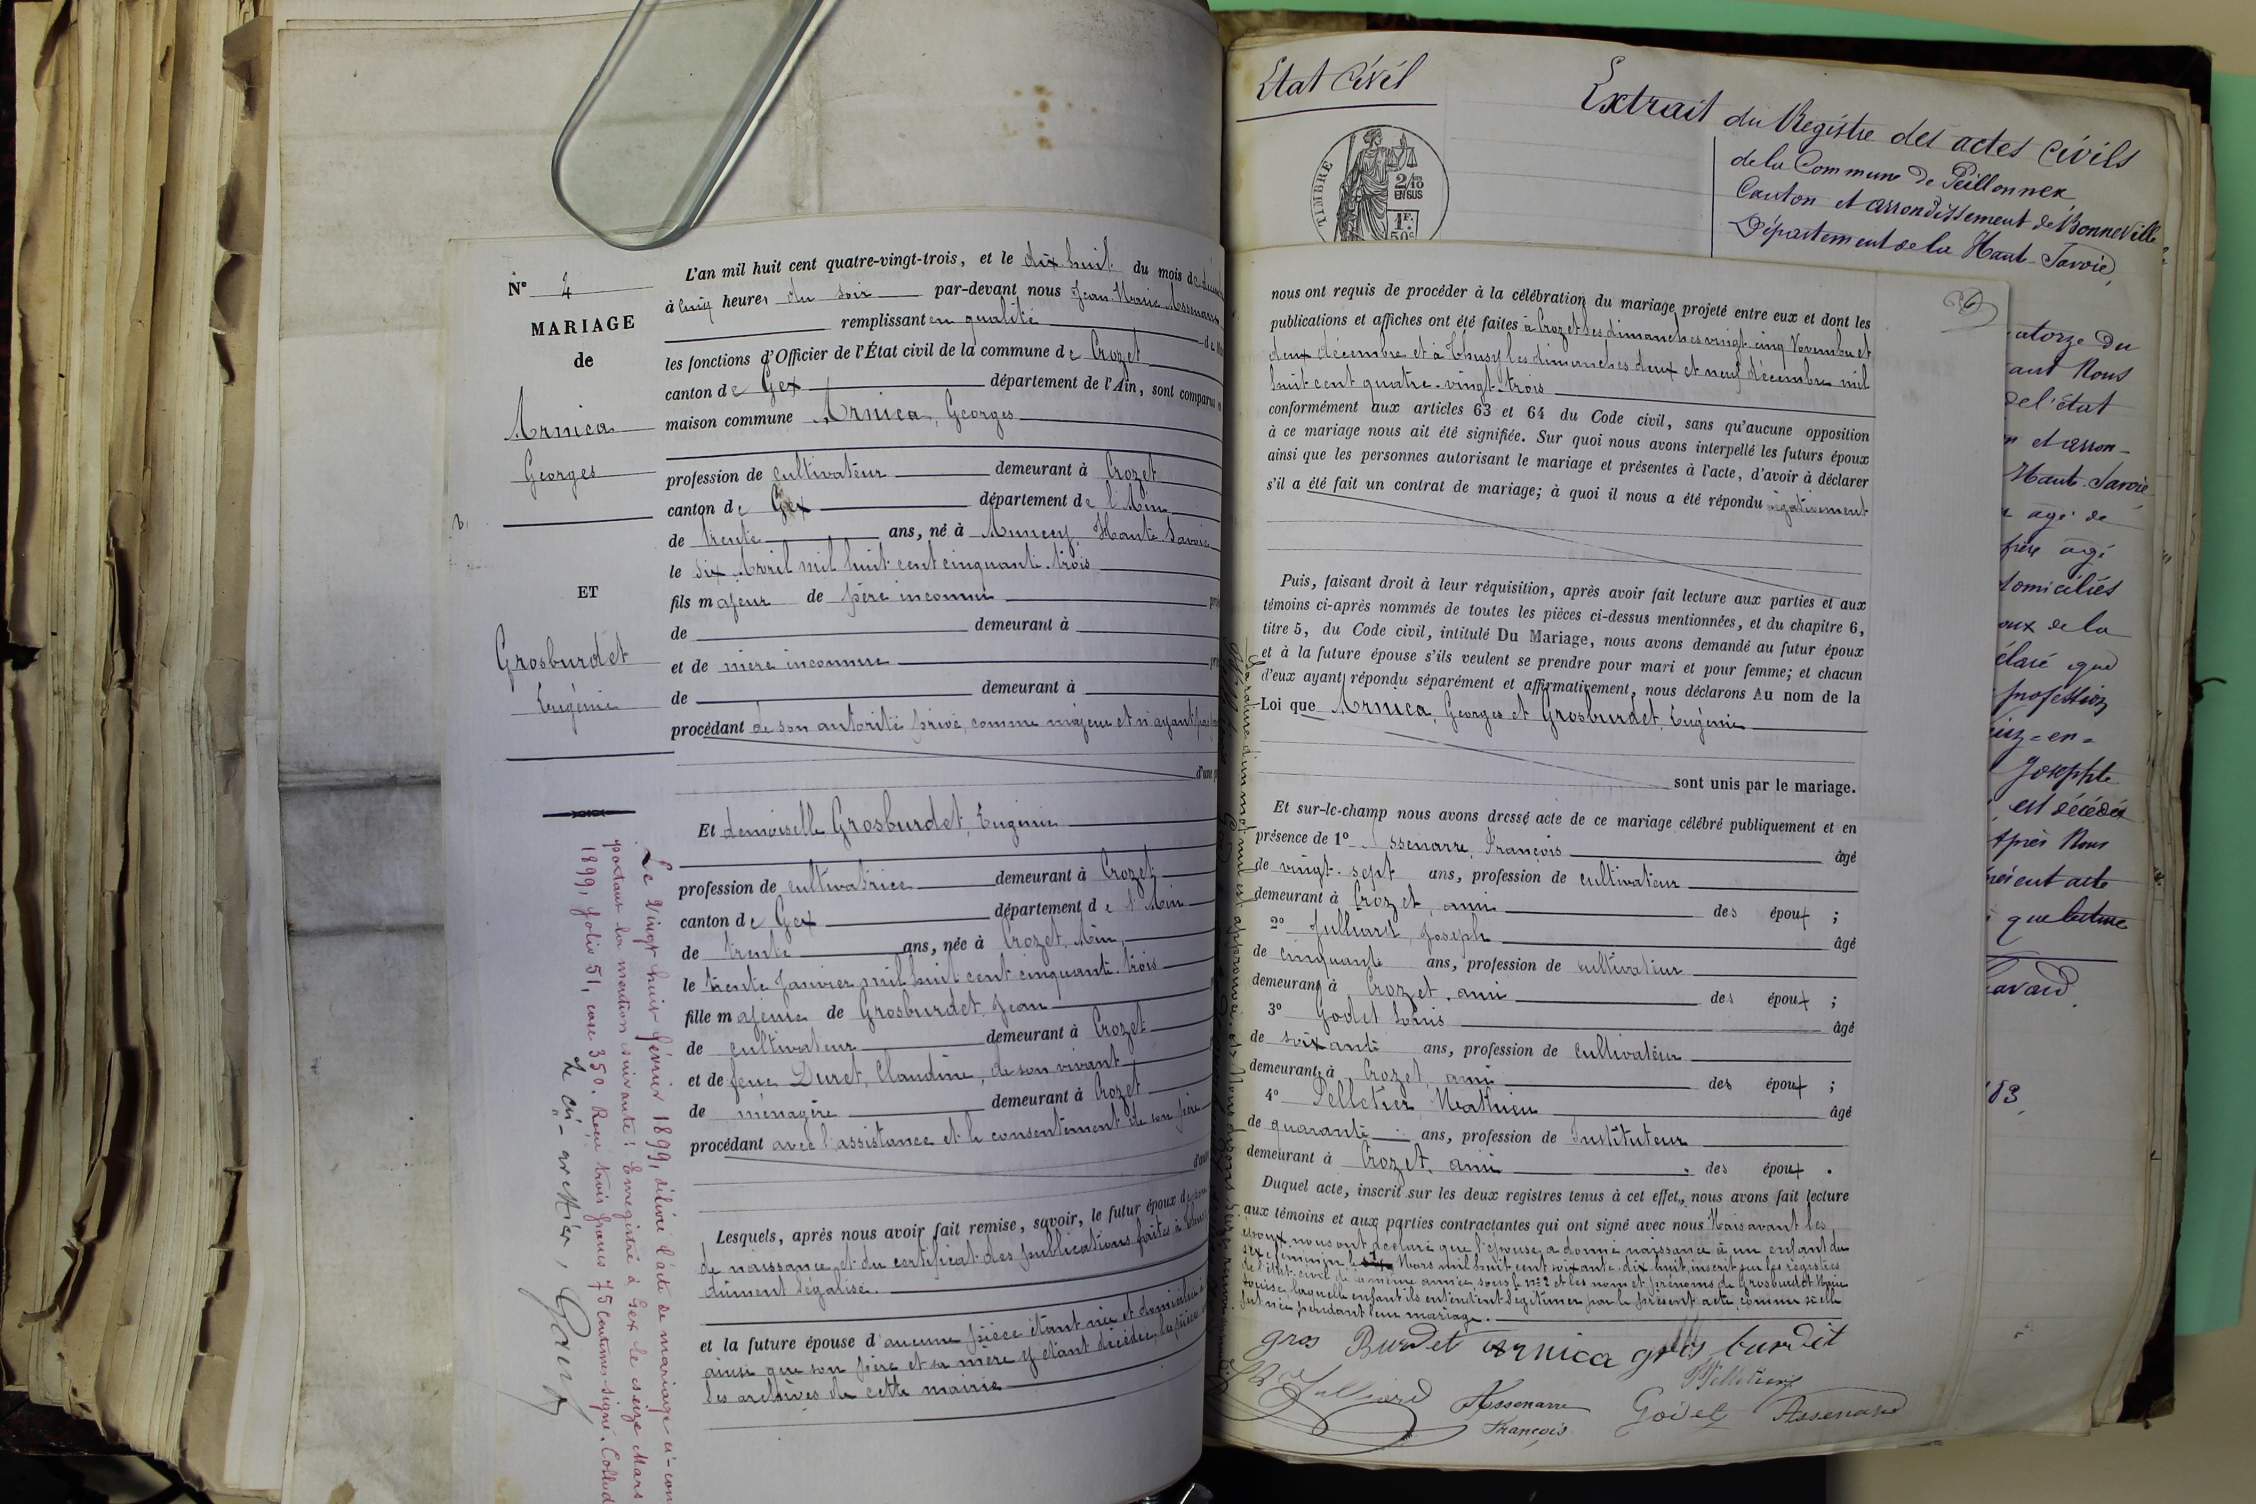 N° 4
MARIAGE
de
Arnica
Georges
ET
Grosburdet
Eugénie
L'an mil huit cent quatre-vingt-trois, et le dix huit du mois de
à cinq heures du soir par-devant nous Jean Marie Assenarre
remplissant en qualité de
les fonctions d'Officier de l'État civil de la commune de Crozet
canton de Gex département de l'Ain, sont comparus
maison commune Arnica, Georges
profession de cultivateur demeurant à Crozet
canton de Gex département de l'Ain
de trente ans, né à Annecy, Haute Savoie
le six Avril mil huit cent cinquante-trois
fils majeur de père inconnu
de demeurant à
et de mère inconnue
de demeurant à
procédant de son autorité privé, comme majeur et n'ayant
d'une p
Et demoiselle Grosburdet, Eugénie
profession de cultivatrice demeurant à Crozet
canton de Gex département de l'Ain
de trente ans, née à Crozet, Ain,
le trente Janvier mil huit cent cinquante-trois
fille majeure de Grosburdet, Jean
de cultivateur demeurant à Crozet
et de feue Duret, Claudine, de son vivant
de ménagère demeurant à Crozet
procédant avec l'assistance et le consentement de son père
Lesquels, après nous avoir fait remise, savoir, le futur époux de son
de naissance et du certificat des publications faites à
dûment légalisé.
et la future épouse d'aucune pièce étant née et domiciliée
ainsi que son père et sa mère y étant décédée, les pièces
les archives de cette mairie
Le vingt huit février 1899, délivré l'acte de mariage ci-con
portant la mention suivante: Enregistré à Gex le seize Mars
1899, folio 51, case 350. Reçu trois francs 75 centimes. signé. Collod
Le
Etat Civil
TIMBRE
2/10
EN SUS
1F.
50c
Extrait du Registre des actes Civils
de la Commune de Peillonnex
Canton et arrondissement de Bonneville
Département de la Haute-Savoie,
nous ont requis de procéder à la célébration du mariage projeté entre eux et dont les
publications et affiches ont été faites à Crozet les dimanches vingt-cinq Novembre et
deux décembre et à Thusy les dimanches deux et neuf décembre mil
huit cent quatre-vingt-trois
conformément aux articles 63 et 64 du Code civil, sans qu'aucune opposition
à ce mariage nous ait été signifiée. Sur quoi nous avons interpellé les futurs époux
ainsi que les personnes autorisant le mariage et présentes à l'acte, d'avoir à déclarer
s'il a été fait un contrat de mariage; à quoi il nous a été répondu négativement
Puis, faisant droit à leur réquisition, après avoir fait lecture aux parties et aux
témoins ci-après nommés de toutes les pièces ci-dessus mentionnées, et du chapitre 6,
titre 5, du Code civil, intitulé Du Mariage, nous avons demandé au futur époux
et à la future épouse s'ils veulent se prendre pour mari et pour femme; et chacun
d'eux ayant répondu séparément et affirmativement, nous déclarons Au nom de la
Loi que Arnica, Georges et Grosburdet, Eugénie
sont unis par le mariage.
Et sur-le-champ nous avons dressé acte de ce mariage célébré publiquement et en
présence de 1° Assenarre, François âgé
de vingt-sept ans, profession de cultivateur
demeurant à Crozet, ami des époux ;
2° Julliard, Joseph âgé
de cinquante ans, profession de cultivateur
demeurant à Crozet, ami des époux ;
3° Godet Louis âgé
de soixante ans, profession de cultivateur
demeurant à Crozet, ami des époux ;
4° Pelletier, Mathieu âgé
de quarante ans, profession de Instituteur
demeurant à Crozet, ami des époux .
Duquel acte, inscrit sur les deux registres tenus à cet effet, nous avons fait lecture
aux témoins et aux parties contractantes qui ont signé avec nous Mais avant les
époux nous ont déclaré que l'épouse a donné naissance à un enfant du
sexe féminin le Mars mil huit cent soixante-dix-huit, inscrit sur les registres
de l'état-civil de la même année sous le n° 2 et les nom et prénoms de Grosburdet Marie
Louise, laquelle enfant ils entendent légitimer par le présent acte, comme si elle
fut née pendant leur mariage.
gros Burdet arnica gros burdet
Julliard Assenarre François Godet Pelletier Assenarre
La rature d'un mot nul est approuvée.
atorze du
ant Nous
de l'état
et arron-
Haute-Savoie
agé de
frère agé
domiciliés
aux de la
claré que
profession
en-
Josephte
est décédée
Après Nous
présent acte
que lecture
83,